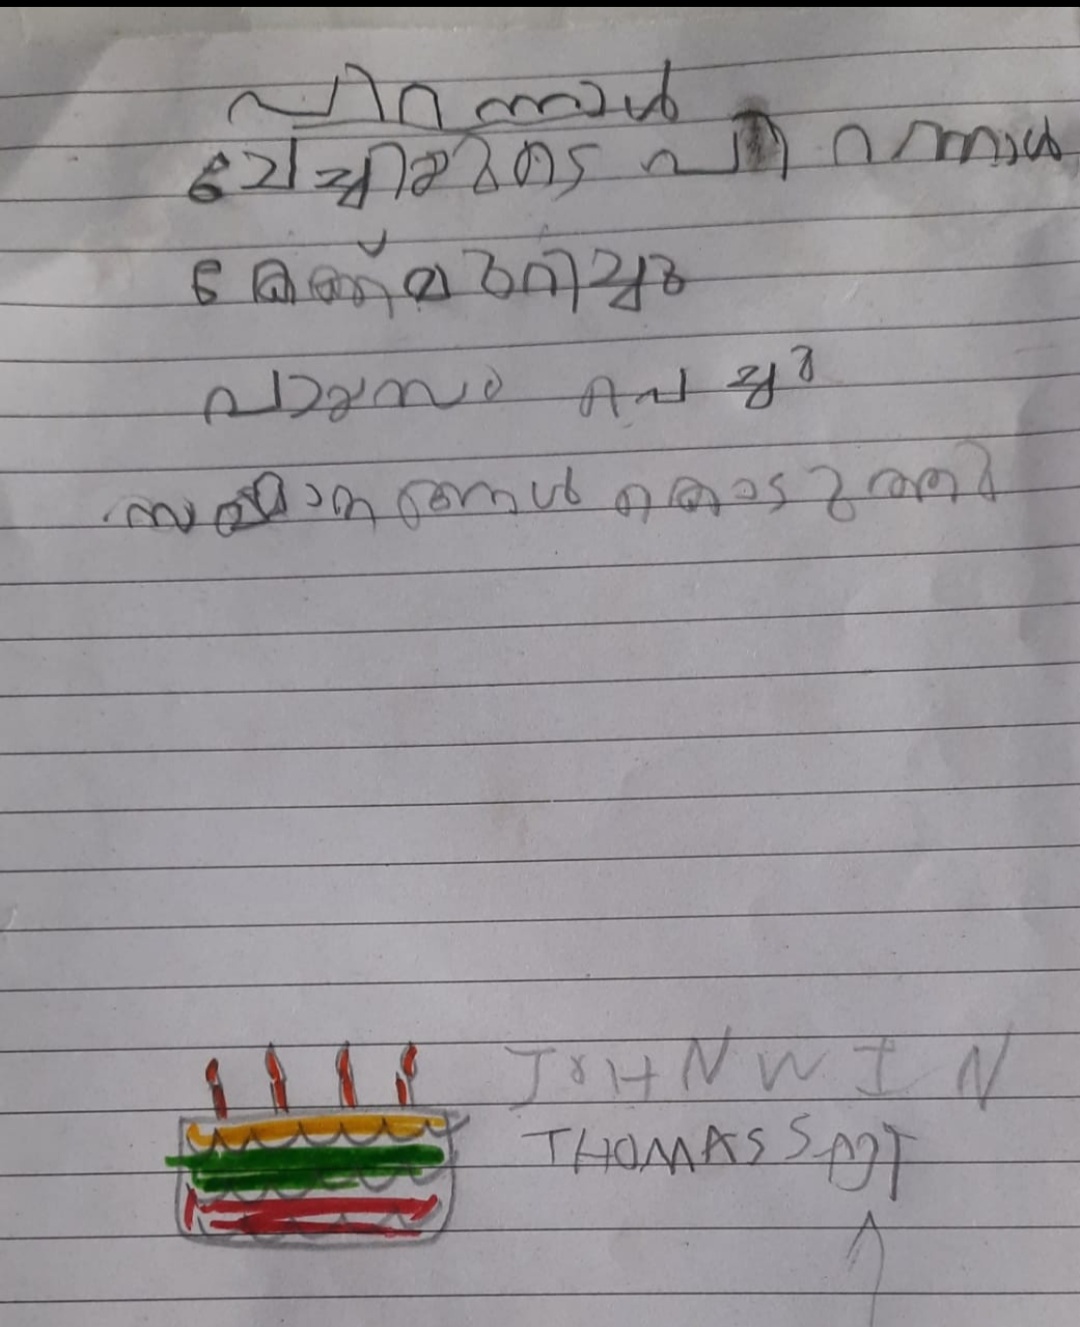 പിറന്നാൾ
ചേച്ചിയുടെ പിറന്നാൾ
കേക്ക് മുറിച്ചു
പായസം വെച്ചു
സമ്മാനങ്ങൾ കൊടുത്തു
JOHNWIN
THOMAS SAJI